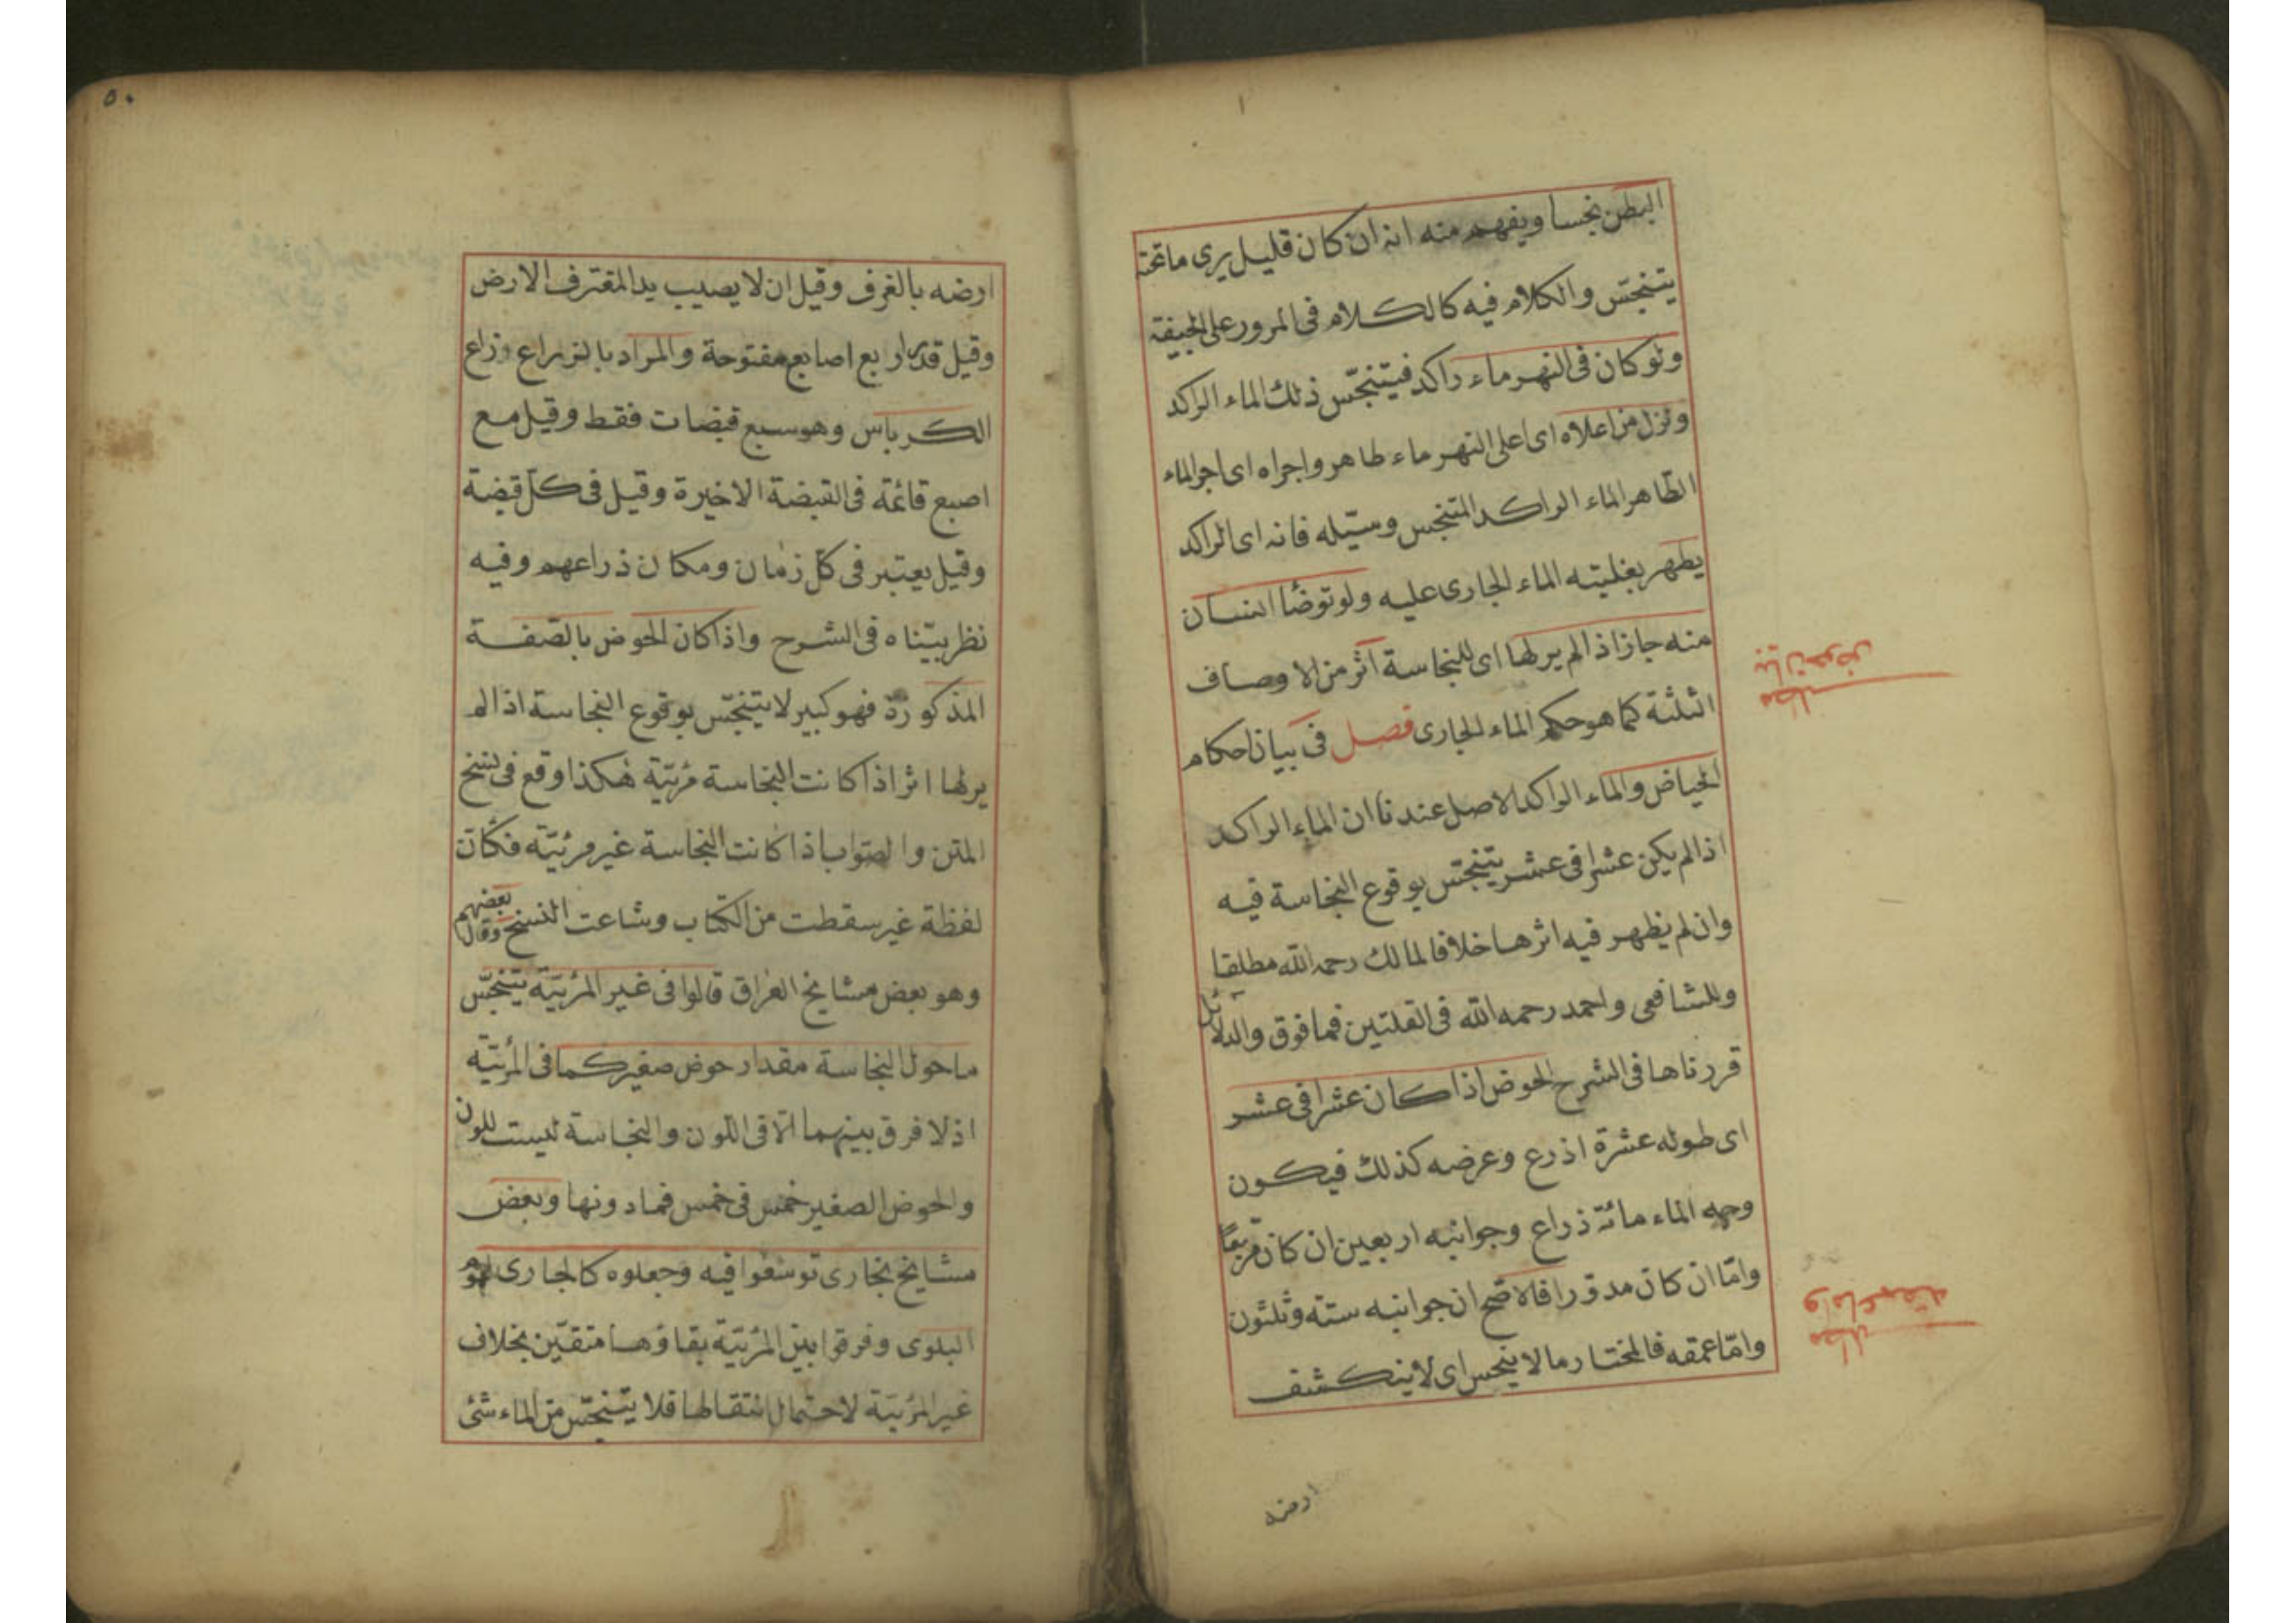 البطن نجسا ويفهم منه انه ان كان قليل يرى ما تحته
يتنجّس والكلام فيه كالكلام فى المرور على الجيفة
ولو كان فى النهر ماء راكد فيتنجّس ذلك الماء الراكد
ونزل من اعلاه اى اعلى النهر ماء طاهر واجراه اى اجر الماء
الطّاهر الماء الراكد المتنجس وسيّله فانه اى الراكد
يطهر بغلبته الماء الجارى عليه ولو توضّا انسان
منه جاز اذ الم ير لها اى للنجاسة اثر من الاوصاف
الثلثة كما هو حكم الماء الجارى فصل فى بيان احكام
الحياض والماء الراكد الاصل عندنا ان الماء الراكد
اذ الم يكن عشرا فى عشر يتنجّس بوقوع النجاسة فيه
وان لم يظهر فيه اثرها خلافا لمالك رحمه الله مطلقا
وللشافعى واحمد رحمه الله فى القلتين فما فوق والدلائل
قررناها فى الشرح الحوض اذا كان عشرا فى عشر
اى طوله عشرة اذرع وعرضه كذلك فيكون
وجه الماء مائة ذراع وجوانبه اربعين ان كان مربّعًا
وامّا ان كان مدوّرا فالاصّح ان جوانبه ستة وثلثون
وامّا عمقه فالمختار ما لا ينحس اى لا ينكشف
مطلب
بيان حوض
مطلب
واما عمقه
ارضه
٥٠
ارضه بالغرف وقيل ان لا يصيب يد المغترف الارض
وقيل قدر اربع اصابع مفتوحة والمراد بالذراع ذراع
الكرباس وهو سبع قبضات فقط وقيل مع
اصبع قائمة فى القبضة الاخيرة وقيل فى كلّ قبضة
وقيل يعتبر فى كلّ زمان ومكان ذراعهم وفيه
نظر بيّناه فى الشرح واذا كان الحوض بالصّفة
المذكورة فهو كبير لا يتنجّس بوقوع النجاسة اذ الم
ير لها اثر اذا كانت النجاسة مرئيّة هكذا وقع فى نسخ
المتن والصّواب اذا كانت النجاسة غير مرئيّة فكأن
لفظة غير سقطت من الكتاب وشاعت النسخ وقال بعضهم
وهو بعض مشايخ العراق قالوا فى غير المرئيّة يتنجّس
ما حول النجاسة مقدار حوض صغير كما فى المرئيّة
اذ لا فرق بينهما الّا فى اللون والنجاسة ليست للون
والحوض الصغير خمس فى خمس فما دونها وبعض
مشايخ بخارى توسّعوا فيه وجعلوه كالجارى لعموم
البلوى وفرقوا بين المرئيّة بقاؤها متقيّن بخلاف
غير المرئيّة لاحتمال انتقالها فلا يتنجّس من الماء شئ